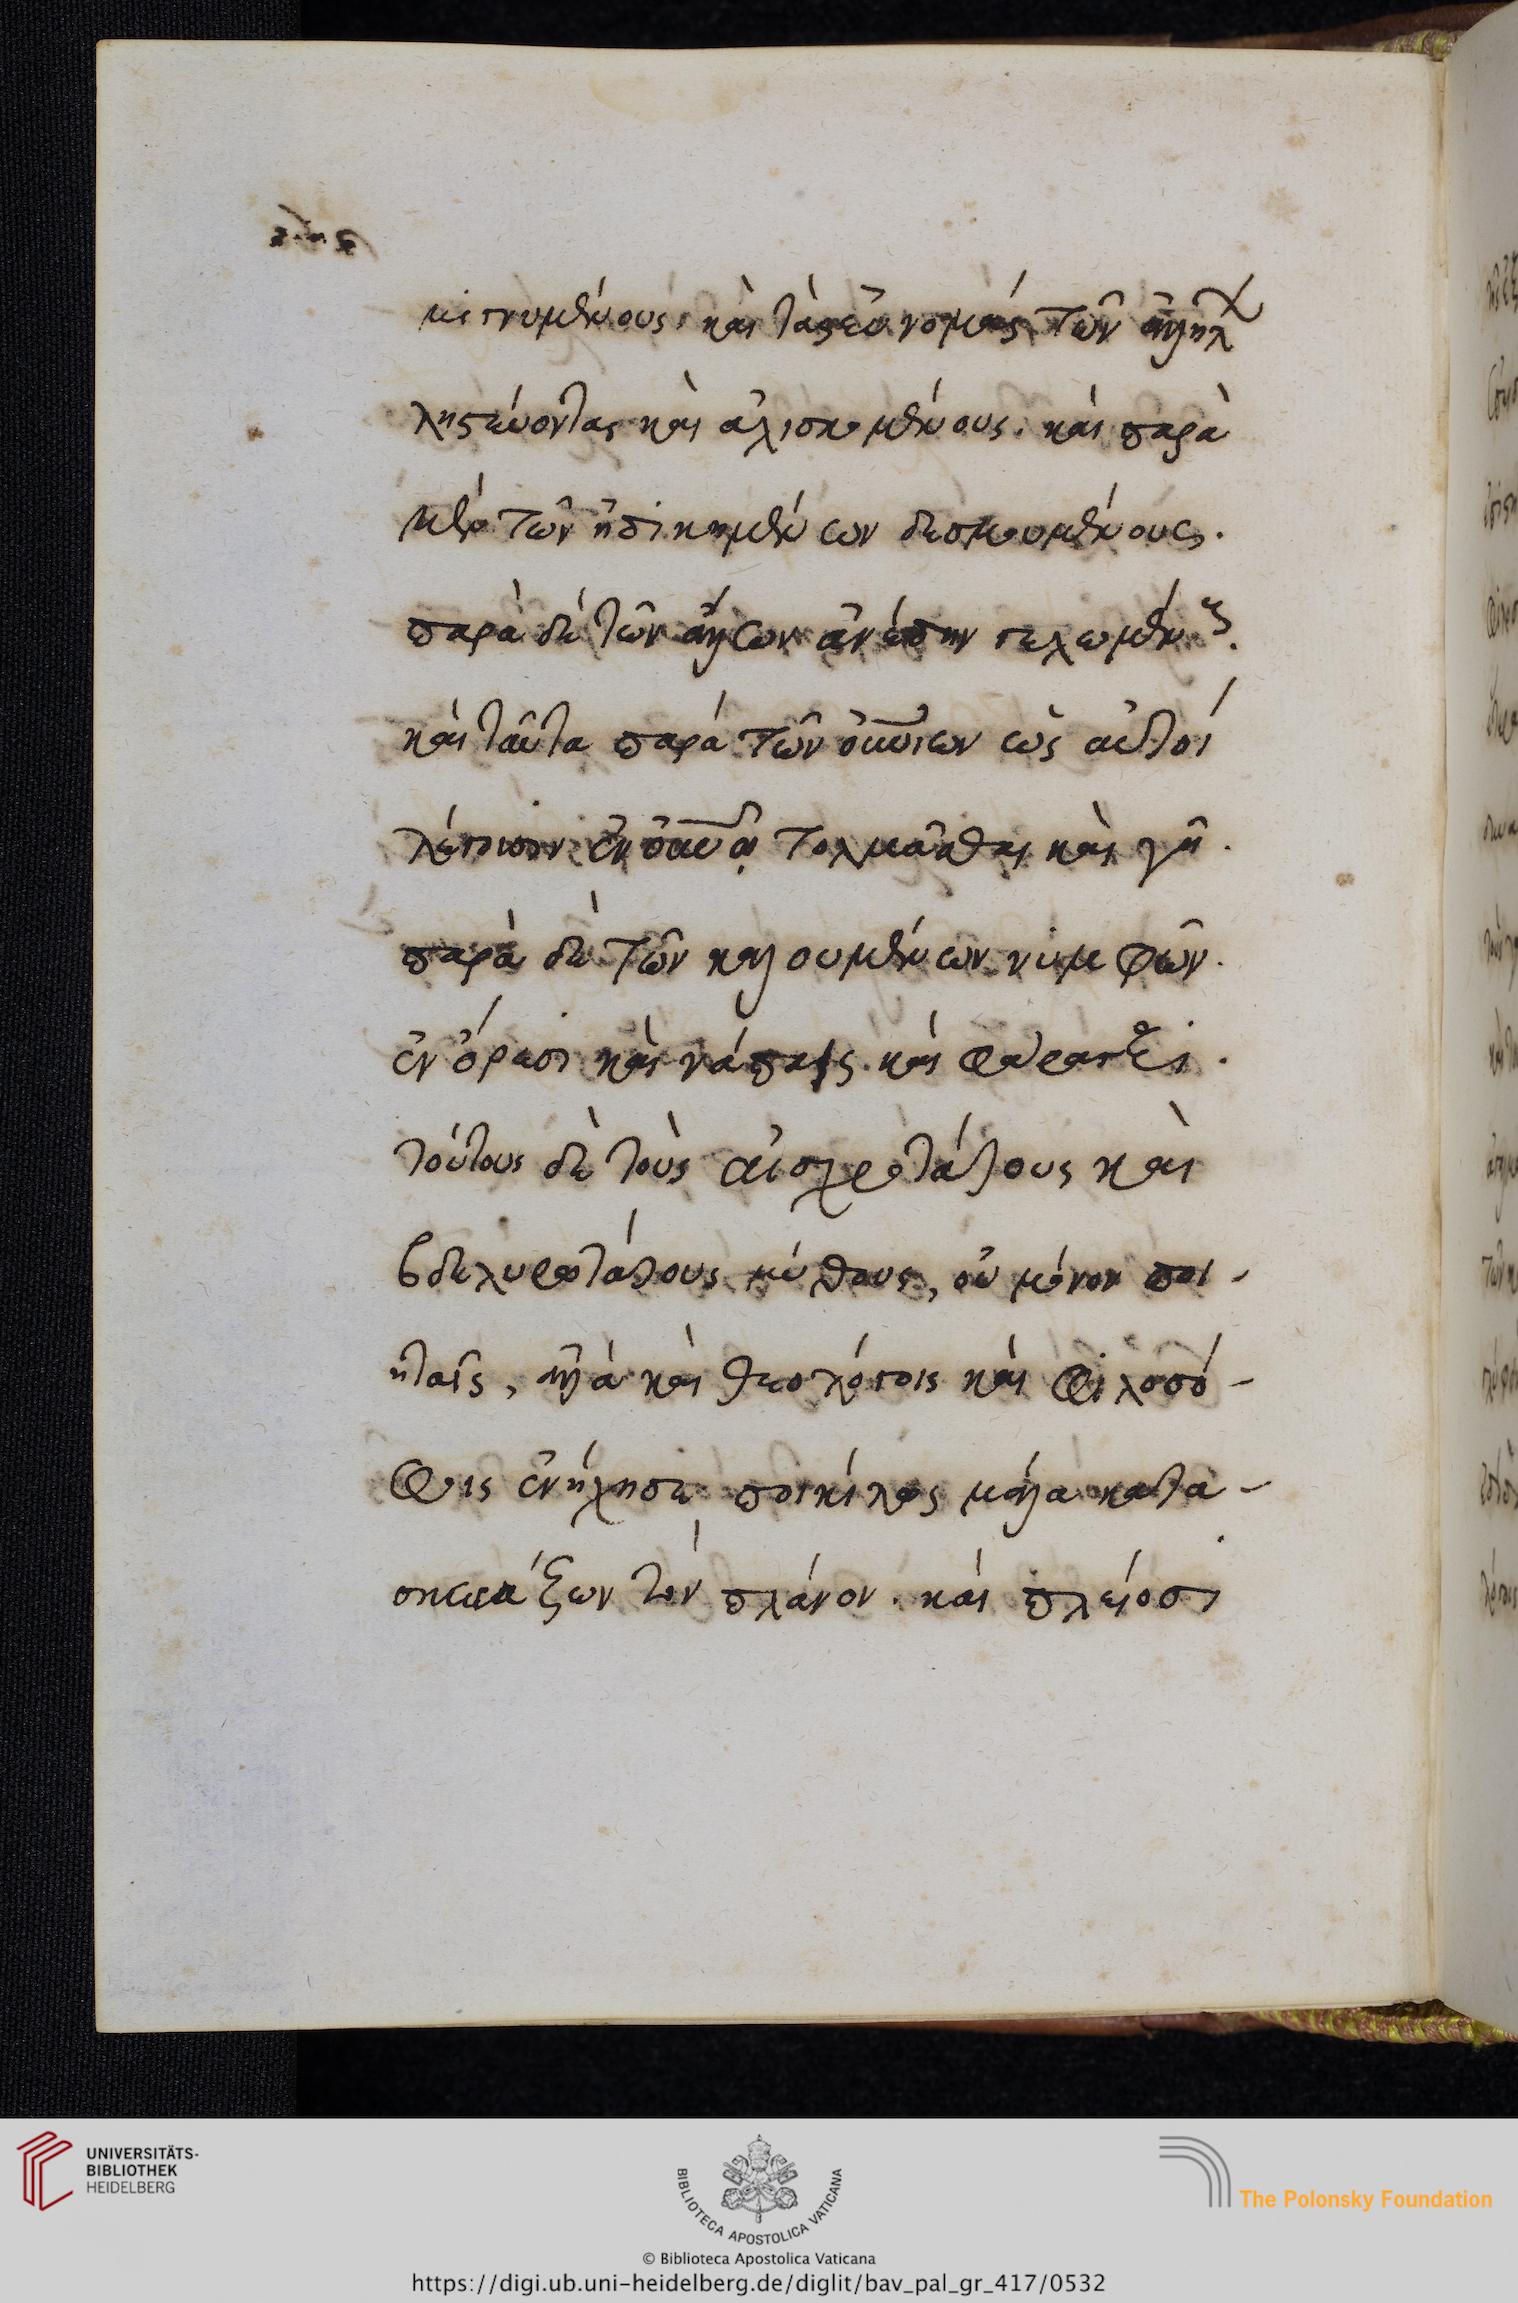 μιγνυμένους· καὶ τὰς εὐνομὰς τῶν ἀλλήλ
λῃστεύοντας καὶ ἁλισκομένους. καὶ παρὰ
μὲν τῶν ἠδικημένων δεσμουμένους.
παρὰ δὲ τῶν ἄλλων ἀνέδην γελωμένους.
καὶ ταῦτα παρὰ τῶν οὐνίων ὡς αὐτοὶ
λέγουσιν ἐν οὐνῷ τολμᾶσθαι καὶ γῆ.
παρὰ δὲ τῶν καλουμένων νυμφῶν.
ἐν ὄρεσι καὶ νάπαις καὶ φάραγξι.
τούτους δὲ τοὺς αἰσχροτάτους καὶ
βδελυρωτάτους μύθους, οὐ μόνον ποι-
ηταῖς, ἀλλὰ καὶ θεολόγοις καὶ φιλοσό-
φοις ἐνήχησε ποικίλως μάλα κατα-
σκευάζων τὸν πλάνον. καὶ πλείοσι
UNIVERSITÄTS-
BIBLIOTHEK
HEIDELBERG
BIBLIOTECA APOSTOLICA VATICANA
The Polonsky Foundation
© Biblioteca Apostolica Vaticana
https://digi.ub.uni-heidelberg.de/diglit/bav_pal_gr_417/0532